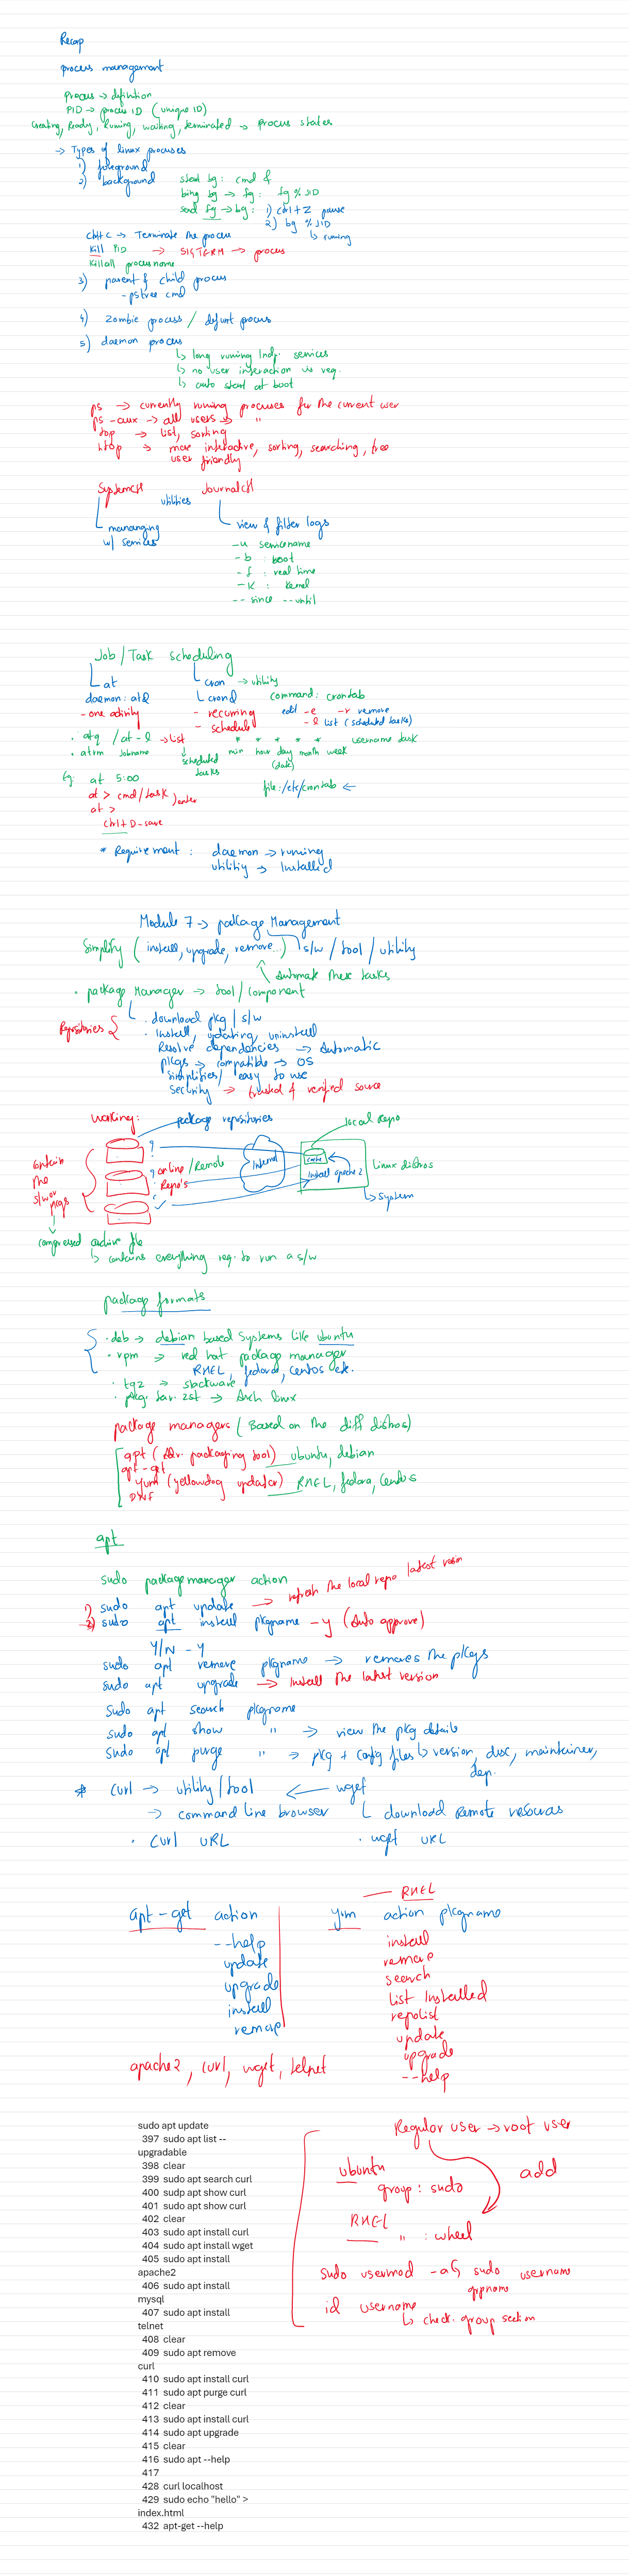 Recap
process management
Process → definition
PID → process ID (unique ID)
Creating, Ready, Running, waiting, terminated → process states
→ Types of linux processes
1) foreground
2) background
start bg: cmd &
bring bg → fg: fg % JID
send fg → bg: 1) ctrl+Z pause
2) bg % JID
↳ running
ctrl+C → Terminate the process
Kill PID → SIGTERM → process
Killall processname
3) parent & child process
- pstree cmd
4) Zombie process / defunct process
5) daemon process
↳ long running Indp. services
↳ no user interaction is req.
↳ auto start at boot
ps → currently running processes for the current user
ps -aux → all users → "
top → list, sorting
htop → more interactive, sorting, searching, tree
user friendly
Systemctl utilities Journalctl
managing w/ services
view & filter logs
-u servicename
-b : boot
-f : real time
-K : Kernel
-- since --until
Job/Task scheduling
at
cron → utility
daemon: atd
crond
command: crontab
- one activity
- recurring
edit -e -r remove
- schedule
-l list (scheduled tasks)
· atq / at -l → list
scheduled tasks
* * * * * username task
· atrm jobname
min hour day month week
(date)
Eg: at 5:00
file: /etc/crontab ←
at > cmd/task ) enter
at >
ctrl+D - save
* Requirement : daemon → running
utility → Installed
Module 7 → package Management
Simplify (install, upgrade, remove...) s/w / tool / utility
Automate these tasks
· package Manager → tool / component
Repositories {
· download pkg / s/w
· Install, updating, uninstall
Resolve dependencies → Automatic
pkgs → compatible → OS
simplifies / easy to use
Security → trusted & verified source
Working:
package repositories
local Repo
contain the s/w or pkgs
online / Remote Repo's
Internet
cache
install apache2
Linux distros
↳ System
compressed archive file
↳ contains everything req. to run a s/w
package formats
· deb → debian based Systems like ubuntu
· rpm → red hat package manager
RHEL, fedora, Centos etc.
· tgz → slackware
· pkg.tar.zst → Arch linux
package managers (Based on the diff distros)
apt (Adv. packaging tool) ubuntu, debian
apt-get
yum (yellowdog updater) RHEL, fedora, Centos
DNF
apt
sudo packagemanager action
1) sudo apt update → refresh the local repo latest version
2) sudo apt install pkgname -y (Auto approve)
Y/N - y
sudo apt remove pkgname → removes the pkgs
sudo apt upgrade → Install the latest version
sudo apt search pkgname
sudo apt show " → view the pkg details
↳ version, disc, maintainer, dep.
sudo apt purge " → pkg + config files
* curl → utility/tool ← wget
→ command line browser
↳ download Remote resources
· curl URL
· wget URL
apt-get action
--help
update
upgrade
install
remove
RHEL
yum action pkgname
install
remove
search
List Installed
repolist
update
upgrade
--help
apache2, curl, wget, telnet
sudo apt update
397 sudo apt list --
upgradable
398 clear
399 sudo apt search curl
400 sudp apt show curl
401 sudo apt show curl
402 clear
403 sudo apt install curl
404 sudo apt install wget
405 sudo apt install
apache2
406 sudo apt install
mysql
407 sudo apt install
telnet
408 clear
409 sudo apt remove
curl
410 sudo apt install curl
411 sudo apt purge curl
412 clear
413 sudo apt install curl
414 sudo apt upgrade
415 clear
416 sudo apt --help
417
428 curl localhost
429 sudo echo "hello" >
index.html
432 apt-get --help
Regular user → root user
add
ubuntu
group: sudo
RHEL
" : wheel
sudo usermod -aG sudo username
grpname
id username
↳ check group section